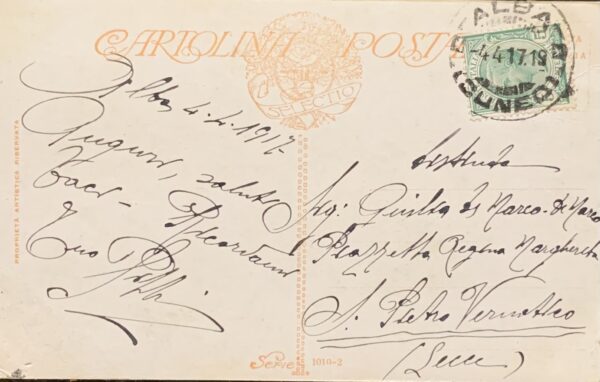 CARTOLINA POSTALE
SELECTIO
ALBA
4.4.17.19
(CUNEO)
PROPRIETÀ ARTISTICA RISERVATA
Alba 4.4.1917
Auguri, saluti
Baci - Ricordami
Distinta
Sig: Giulia De Marco-De Marco
Piazzetta Regina Margherita
S. Pietro Vernotico
(Lecce)
Serie 1010-2